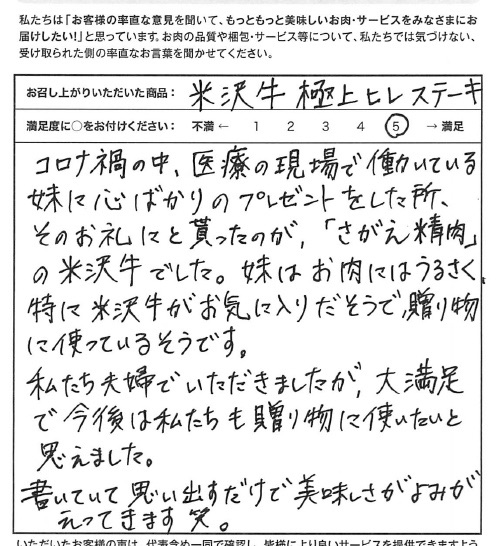 私たちは「お客様の率直な意見を聞いて、もっともっと美味しいお肉・サービスをみなさまにお
届けしたい!」と思っています。お肉の品質や梱包・サービス等について、私たちでは気づけない、
受け取られた側の率直なお言葉を聞かせてください。
お召し上がりいただいた商品: 米沢牛 極上ヒレステーキ
満足度に○をお付けください: 不満 ← 1 2 3 4 5 → 満足
コロナ禍の中、医療の現場で働いている
妹に心ばかりのプレゼントをした所、
そのお礼にと貰ったのが、「さがえ精肉」
の米沢牛でした。妹はお肉にはうるさく
特に米沢牛がお気に入りだそうで、贈り物
に使っているそうです。
私たち夫婦でいただきましたが、大満足
で今後は私たちも贈り物に使いたいと
思えました。
書いていて思い出すだけで美味しさがよみが
えってきます笑。
いただいたお客様の声は、代表含め一同で確認し、皆様により良いサービスを提供できますよう